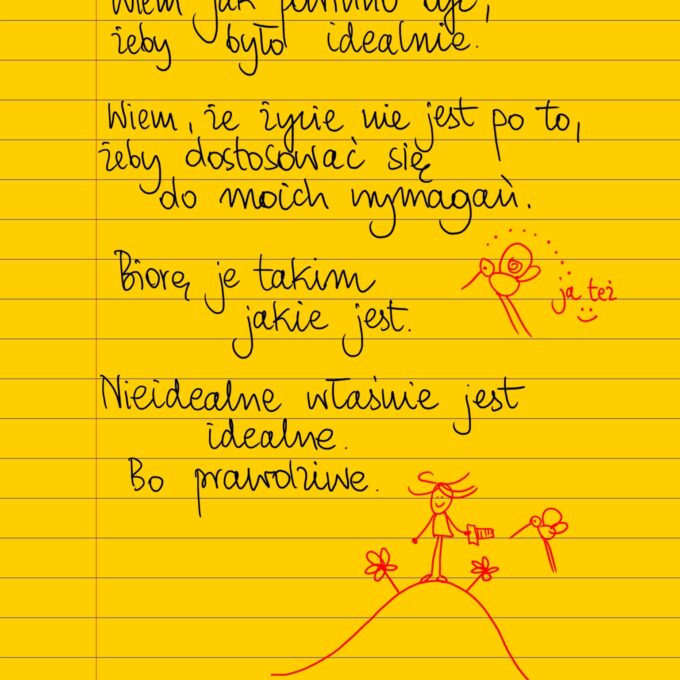 Wiem jak powinno być,
żeby było idealnie.
Wiem, że życie nie jest po to,
żeby dostosować się
do moich wymagań.
Biorę je takim
ja też
jakie jest.
Nieidealne właśnie jest
idealne.
Bo prawdziwe.